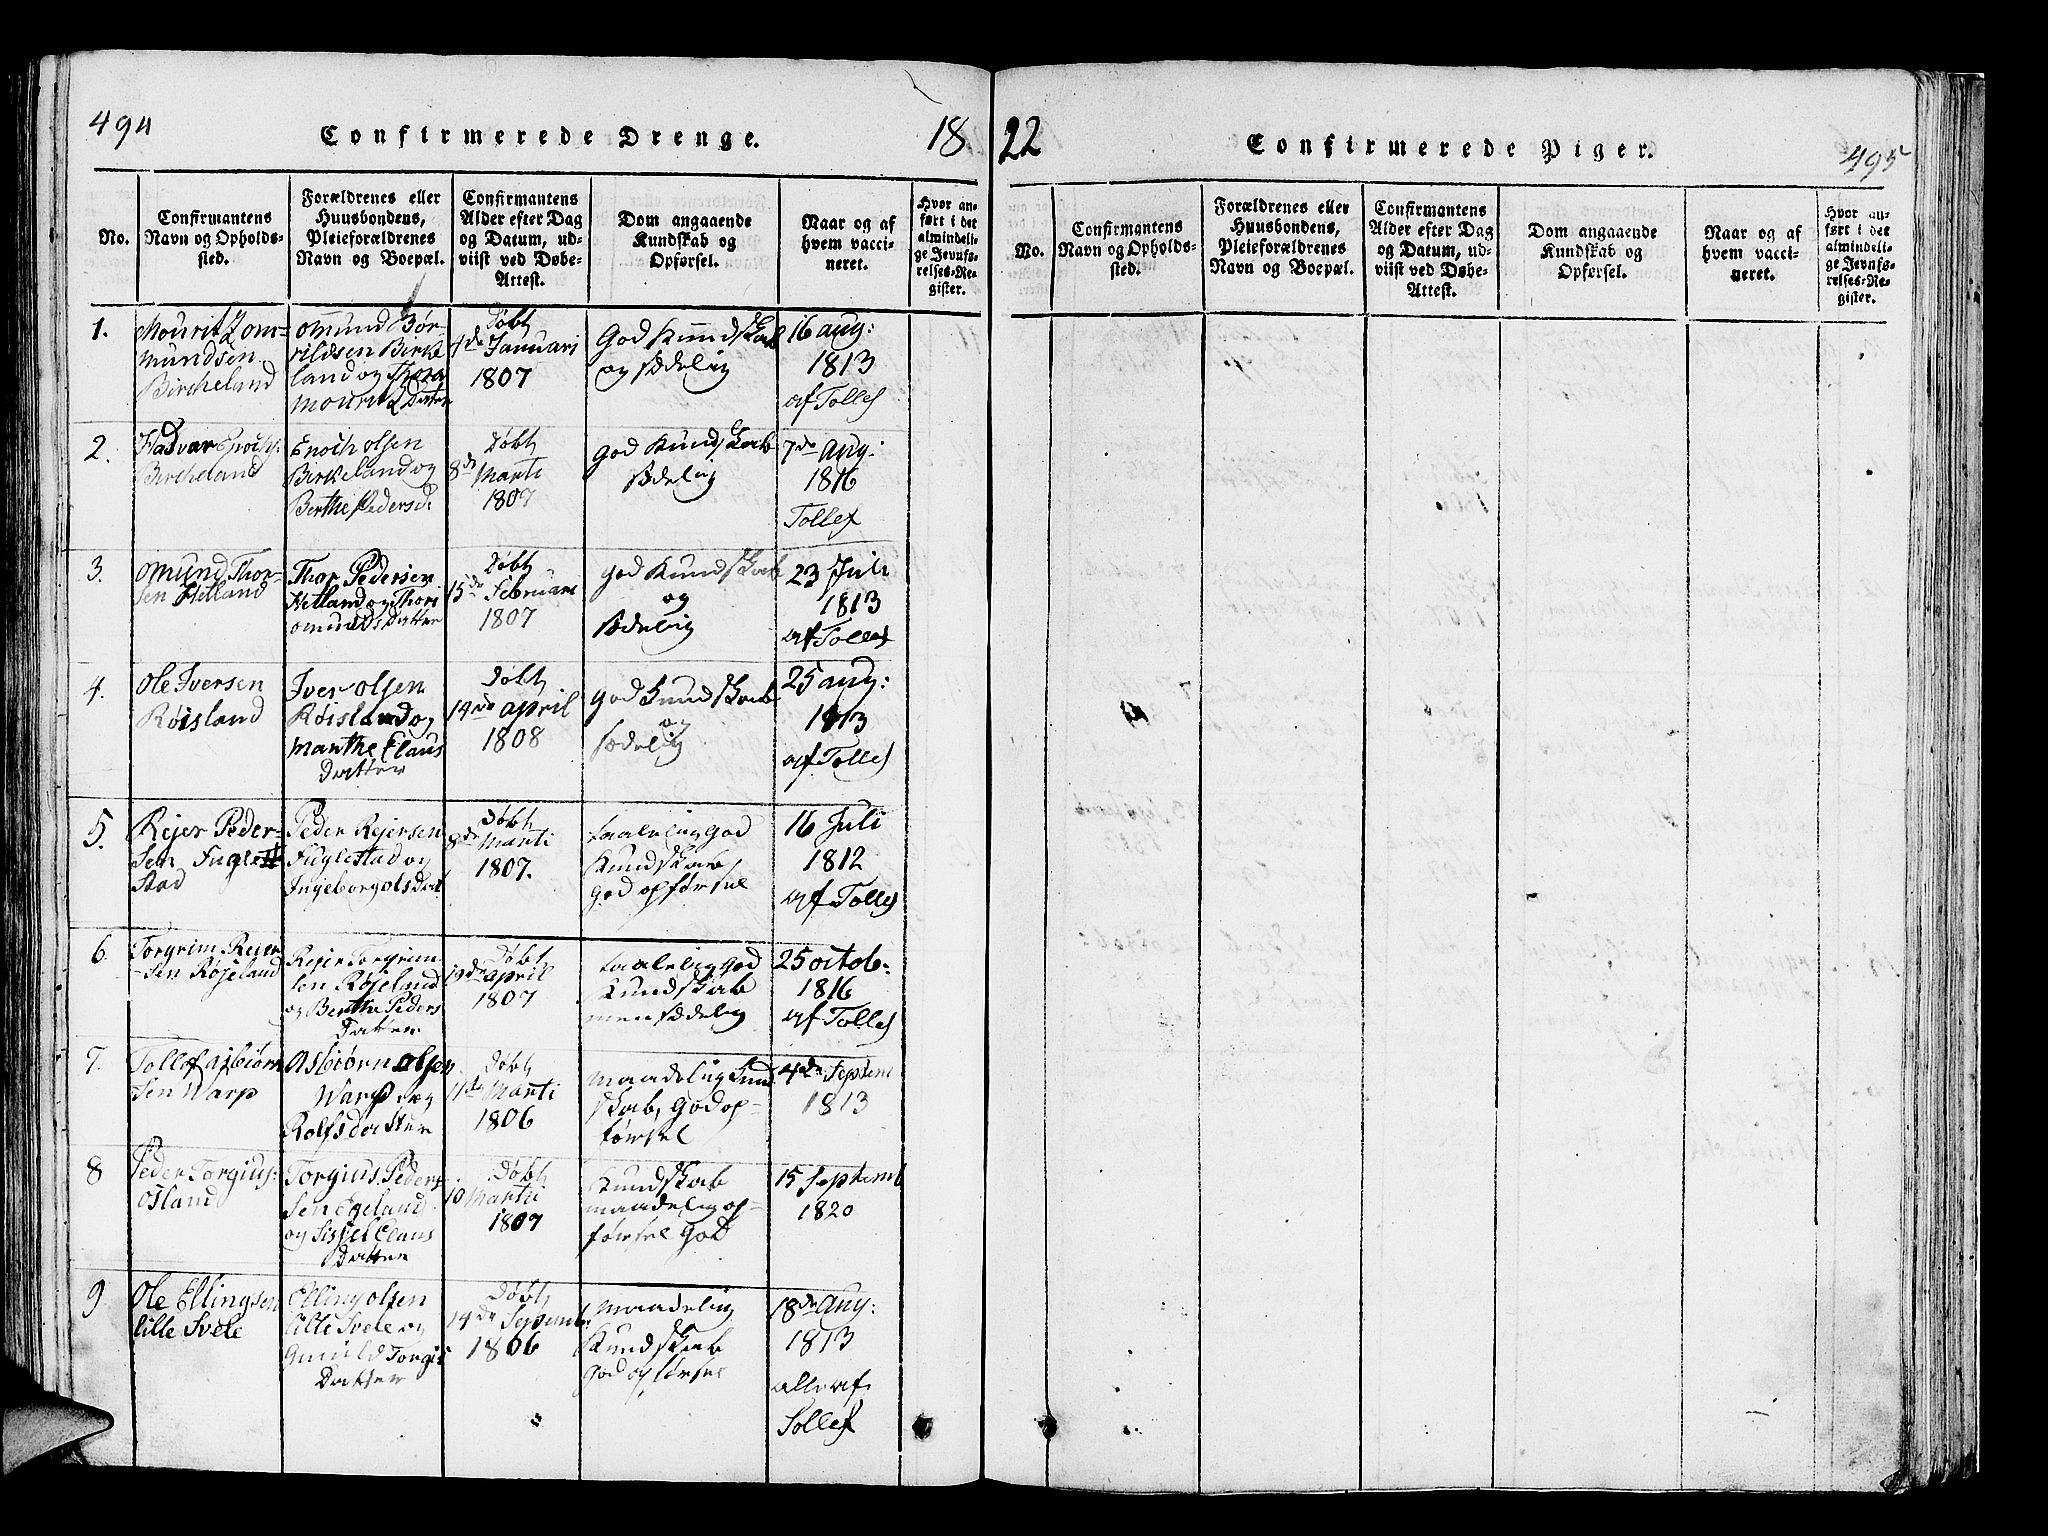 494
Confirmerede Drenge.
18
No.
Confirmantens Navn og Opholdssted.
Forældrenes eller Huusbondens, Pleieforældrenes Navn og Boepæl.
Confirmantens Alder efter Dag og Datum, udviist ved Døbe-Attest.
Dom angaaende Kundskab og Opførsel.
Naar og af hvem vaccineret.
Hvor anført i det almindelige Jevnførelses-Register.
1.
Mouritz om-
mundsen
Bircheland
omund Bør-
rildsen Birke
land og Thora
Mouritz Datter
Døbt
Januari
1807
God Kundskab
og sædelig
16 aug:
1813
af Tollef
2.
Hadvar Enochs:
Bircheland
Enoch olsen
Birkeland og
Berthe Pedersd.
Døbt
8de Marti
1807
god Kundskab
sædelig
7de Aug:
1816
Tollef
3.
omund Thor-
sen Hetland
Thor Pedersen
Hetland og Thori
omundsdatter
Døbt
15de Februari
1807
god Kundskab
og
sædelig
23 Juli
1813
af Tollef
4.
Ole Iversen
Röisland
Iver olsen
Röisland og
Marthe Claus
Datter
Døbt
14de april
1808
god Kundskab
og
sædelig
25 aug:
1813
af Tollef
5.
Rejer Peder-
sen Fugle
stad
Peder Rejersen
Fuglestad og
Ingeborg olsDat
Døbt
8de Marti
1807.
taalelig god
Kundskab,
god opførsel
16 Juli
1812
af Tollef
6.
Torgrim Reier
sen Røjeland
Rejer Torgrim
sen Røjeland
og Berthe Peders
Datter
Døbt
19de april
1807
taalelig god
Kundskab
men sædelig
25 octob:
1816
af Tollef
7.
Tollef Asbiørn
sen Warp
Asbiørn olsen
Warp og
Rolfsdatter
Døbt
11de Marti
1806
maadelig Kund
skab, God op-
førsel
4de Septem
1813
8
Peder Torgius:
Osland
Torgius Peder
sen Egeland
og Sissel Claus
Datter
Døbt
10 Martii
1807
Kundskab
maadelig op-
førsel God
15 Septemb
1820
9
Ole Ellingsen
lille Svele
Elling olsen
lille Svele og
Gunild Torgis
Datter
Døbt
14de Septemb
1806
maadelig
Kundskab
God opførsel
18de Aug:
1813
alle af
Tollef
22
Confirmerede Piger.
495
No.
Confirmantens Navn og Opholdssted.
Forældrenes eller Huusbondens, Pleieforældrenes Navn og Boepæl.
Confirmantens Alder efter Dag og Datum, udviist ved Døbe-Attest.
Dom angaaende Kundskab og Opførsel.
Naar og af hvem vaccineret.
Hvor anført i det almindelige Jevnførelses-Register.